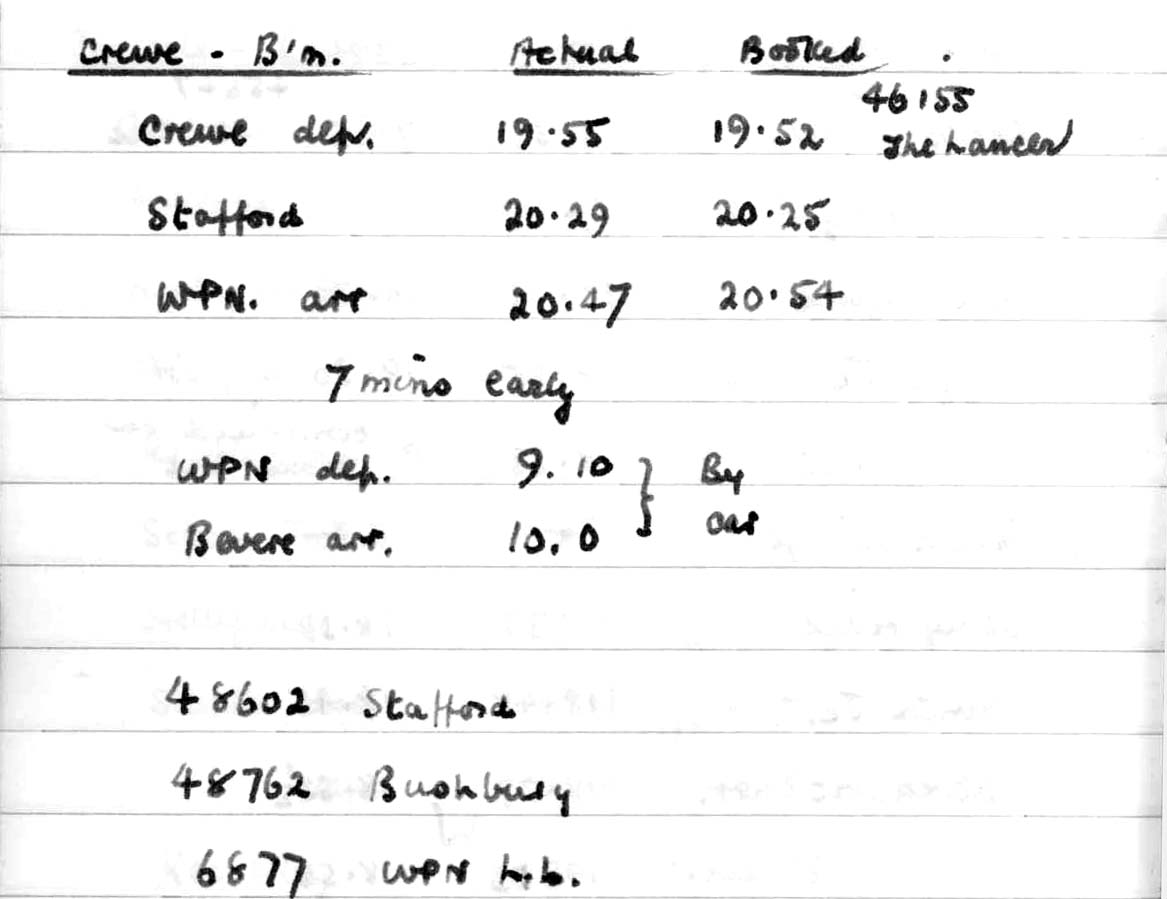 Crewe - B'm. Actual Booked
46155
Crewe dep. 19.55 19.52 The Lancer
Stafford 20.29 20.25
WPN. arr 20.47 20.54
7 mins early
WPN dep. 9.10 } By
Bevere arr. 10.0 car
48602 Stafford
48762 Bushbury
6877 WPN L.L.